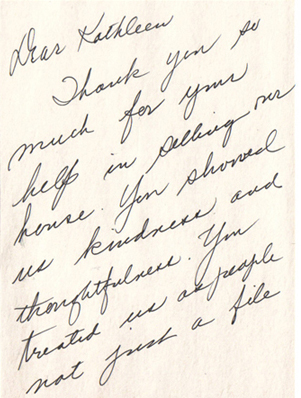 Dear Kathleen
Thank you so
much for your
help in selling our
house. You showed
us kindness and
thoughtfulness. You
treated us as people
not just a file